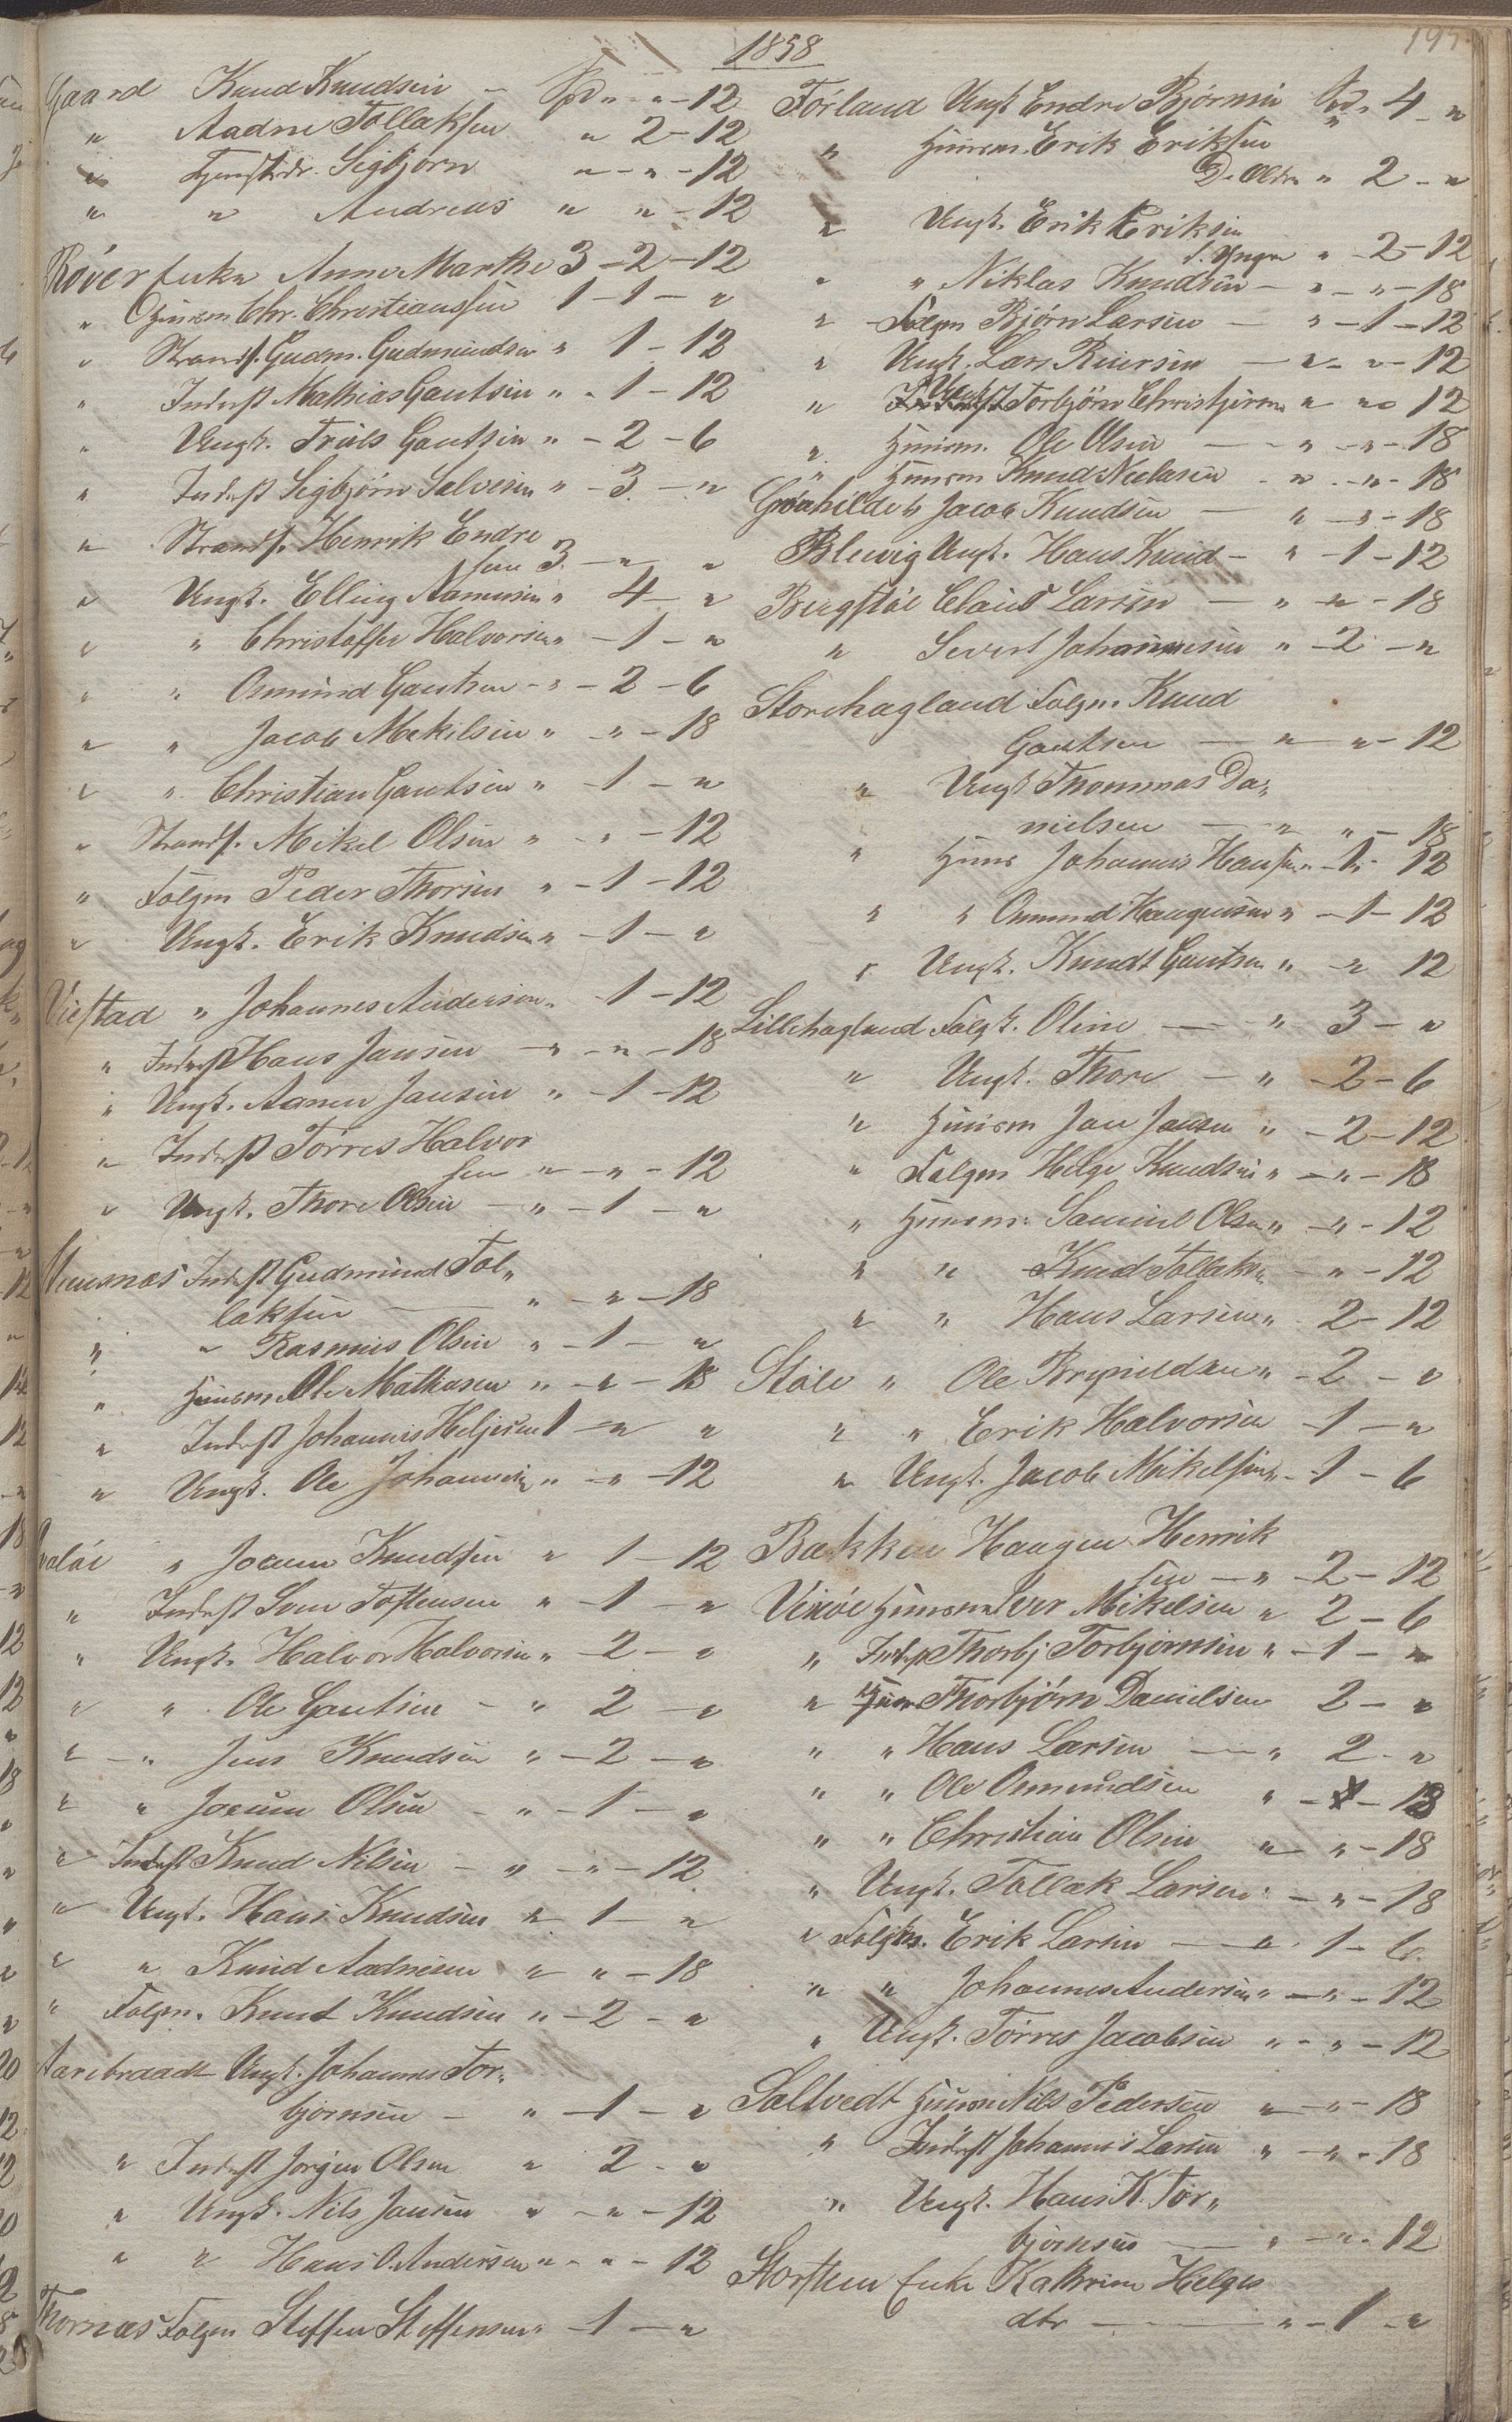 1858
195
Gaard Knud Knudsen — Spd " " - 12
" Aadne Tollaksen " 2 - 12
" Tjenestedr. Sigbjørn " - " - 12
" " Andreas " " - 12
Røver Enke Anne Marthe 3 - 2 - 12
" Huusm Chr. Christiansen 1 - 1 - "
" Strands. Gudm. Gudmundsen " 1 - 12
" Inderst Mathias Gautsen " - 1 - 12
" Ungk. Truls Gautsen " - 2 - 6
" Inderst Sigbjørn Salvesen " - 3 - "
" Strands. Henrik Endre
sen 3 - " "
" Ungk. Elling Aamunsen " 4 - "
" " Christoffer Halvorsen " - 1 - "
" " Osmund Gautsen - " - 2 - 6
" " Jacob Mekelsen " " - 18
" " Christian Gautsen " - 1 - "
" Strands. Mikel Olsen " - " - 12
" Følgm Peder Thorsen " - 1 - 12
" Ungk. Erik Knudsen " - 1 - "
Viestad " Johannes Andersen " - 1 - 12
" Inderst Hans Jansen - " - " - 18
" Ungk. Aanen Jansen " - 1 - 12
" Inderst Tørres Halvor
sen " - " - 12
" Ungk. Thore Olsen - " - 1 - "
Munsnæs Inderst Gudmund Tol"
laksen — " - " - 18
" " Rasmus Olsen " - 1 - "
" Huusm Ole Mathasen " - " - 18
" Inderst Johannes Heljesen 1 - " "
" Ungk. Ole Johannesen " - " - 12
Hvaløe " Joenn Knudsen " 1 - 12
" Inderst Sven Tostensen " - 1 - "
" Ungk. Halvor Halvorsen " - 2 - "
" " Ole Gautsen - " 2 - "
" - " Jens Knudsen " - 2 - "
" " Joenn Olsen - " - 1 - "
" Inderst Knud Nilsen - " - " - 12
" Ungk. Hans Knudsen " 1 - "
" " Knud Aadnesen " " - 18
" Følgm. Knud Knudsen " - 2 - "
Aarebraadt Ungk. Johannes Tor"
bjørnsen - " - 1 - "
" Inderst Jørgen Olsen " 2 - "
" Ungk. Nils Jansen " - " - 12
" " Hans O. Andersen " - " - 12
Thornæs Følgm Steffen Steffensen " - 1 - "
Førland Ungk Endre Bjørnsen Spd. 4 - "
" Huusm. Erik Eriksen
D. Oldre " 2 - "
" Ungk. Erik Eriksen
d. Yngre " - 2 - 12
" " Niklas Knudsen - " - " - 18
" Følgm Bjørn Larsen — " - 1 - 12
" Ungk. Lars Reiersen — " - " - 12
" Ungk Torbjørn Christjernsen " " 12
" Huusm. Ole Olsen — " - " - 18
" Huusm Knud Neelasen - " - " - 18
Grønhilde b Jacob Knudsen — " - " - 18
Blewig Ungk. Hans Knud - " - 1 - 12
Bergstøl Claus Larsen — " - " - 18
" Severt Johannesen " - 2 - "
Storehagland Følgm. Knud
Gautsen — " - " - 12
" Ungk Thommas Da"
nielsen — " " - 18
" Huus Johannes Hansen " - 1 - 12
" " Osmund Haagensen " - 1 - 12
" Ungk. Knudt Gautsen " - " 12
Lillehagland Følgk. Oline — " 3 - "
" Ungk. Thore — " - 2 - 6
" Huusm Jan Jansen " - 2 - 12
" Følgm Helge Knudsen " - " - 18
" Huusm. Samuel Olsen " - " - 12
" " Knud Tollaksen - " - 12
" " Hans Larsen " 2 - 12
Støle " Ole Brynildsen " - 2 - "
" " Erik Halvorsen - 1 - "
" Ungk. Jacob Mikelsen " - 1 - 6
Bækken Haagen Henrik
sen — " - 2 - 12
Vixøe Huusm Iver Mikelsen " 2 - 6
" Inderst Thorbj Torbjørnsen " - 1 - "
" Huus Thorbjørn Danielsen 2 - "
" " Hans Larsen — " 2 - "
" " Ole Osmundsen " - " - 18
" " Christian Olsen " " - 18
" Ungk. Tollak Larsen - " - 18
" Følgm. Erik Larsen — " 1 - 6
" " Johannes Andersen " - " - 12
" Ungk. Tørres Jacobsen " - " - 12
Saltvedt Huusm Nils Pedersen " - " - 18
" Inderst Johannes Larsen " - " - 18
" Ungk. Hans K. Tor"
bjørnsen — " - " - 12
Storsteen Enke Kathrine Helges
dtr — " - 1 - "